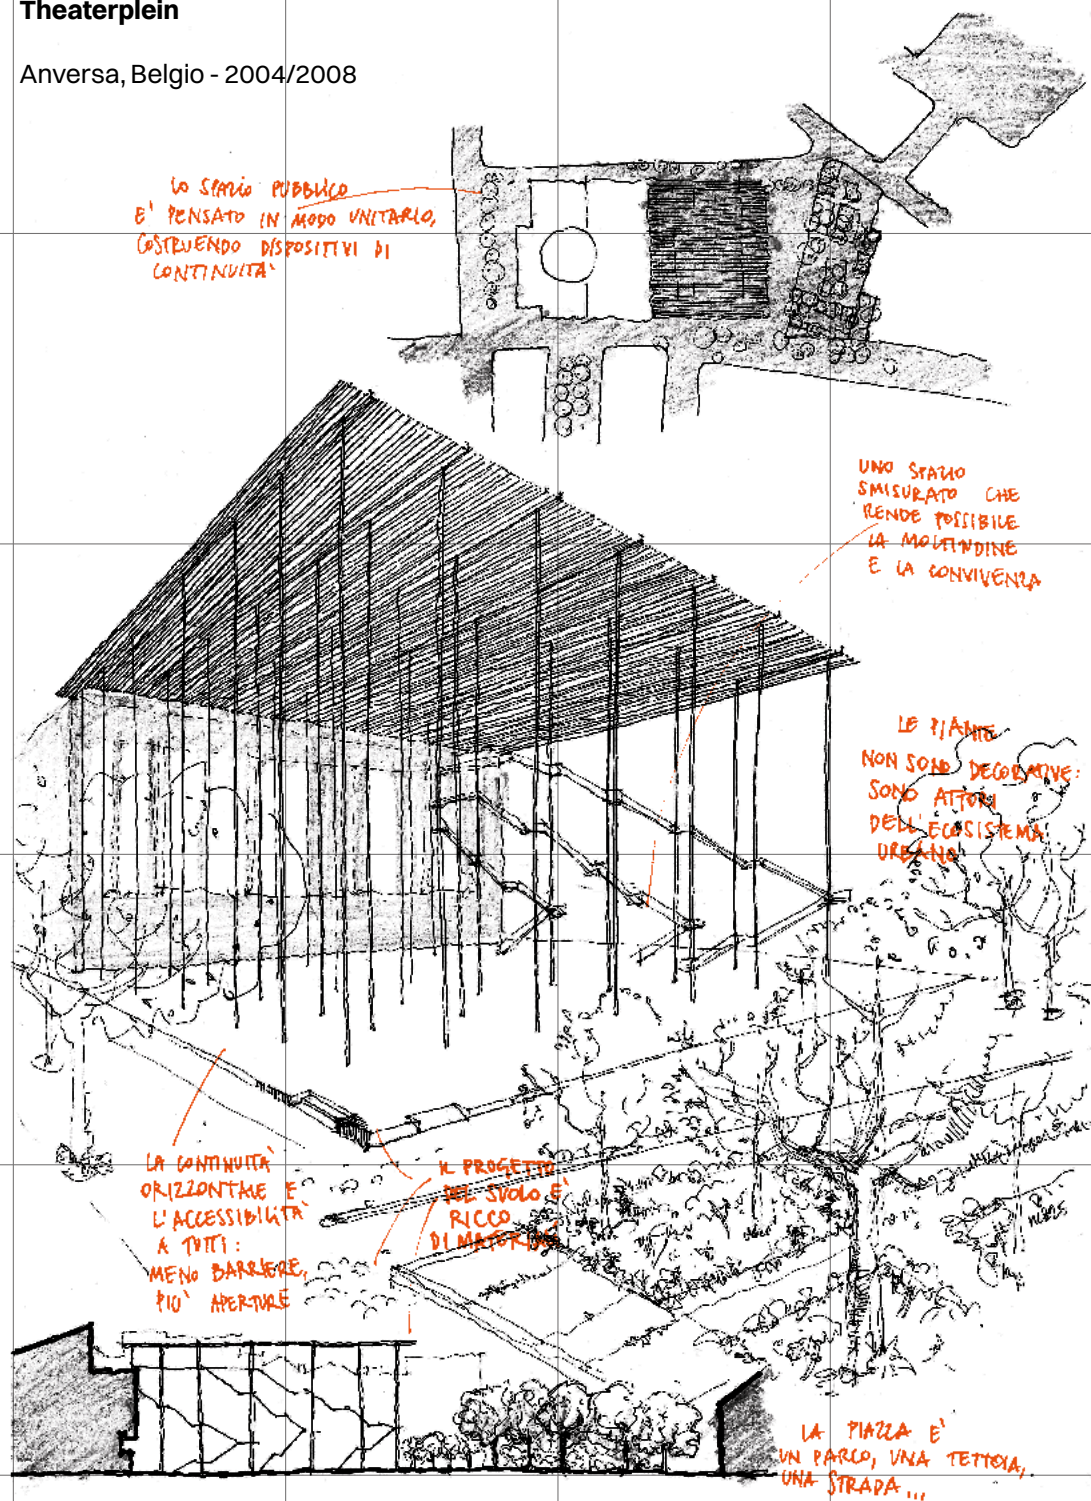 Theaterplein
Anversa, Belgio - 2004/2008
LO SPAZIO PUBBLICO
E' PENSATO IN MODO UNITARIO,
COSTRUENDO DISPOSITIVI DI
CONTINUITA'
UNO SPAZIO
SMISURATO CHE
RENDE POSSIBILE
LA MOLTITUDINE
E LA CONVIVENZA
LE PIANTE
NON SONO DECORATIVE:
SONO ATTORI
DELL'ECOSISTEMA
URBANO
LA CONTINUITA'
ORIZZONTALE E
L'ACCESSIBILITA'
A TUTTI:
MENO BARRIERE,
PIU' APERTURE
IL PROGETTO
DEL SUOLO E'
RICCO
DI MATERIALI
LA PIAZZA E'
UN PARCO, UNA TETTOIA,
UNA STRADA...